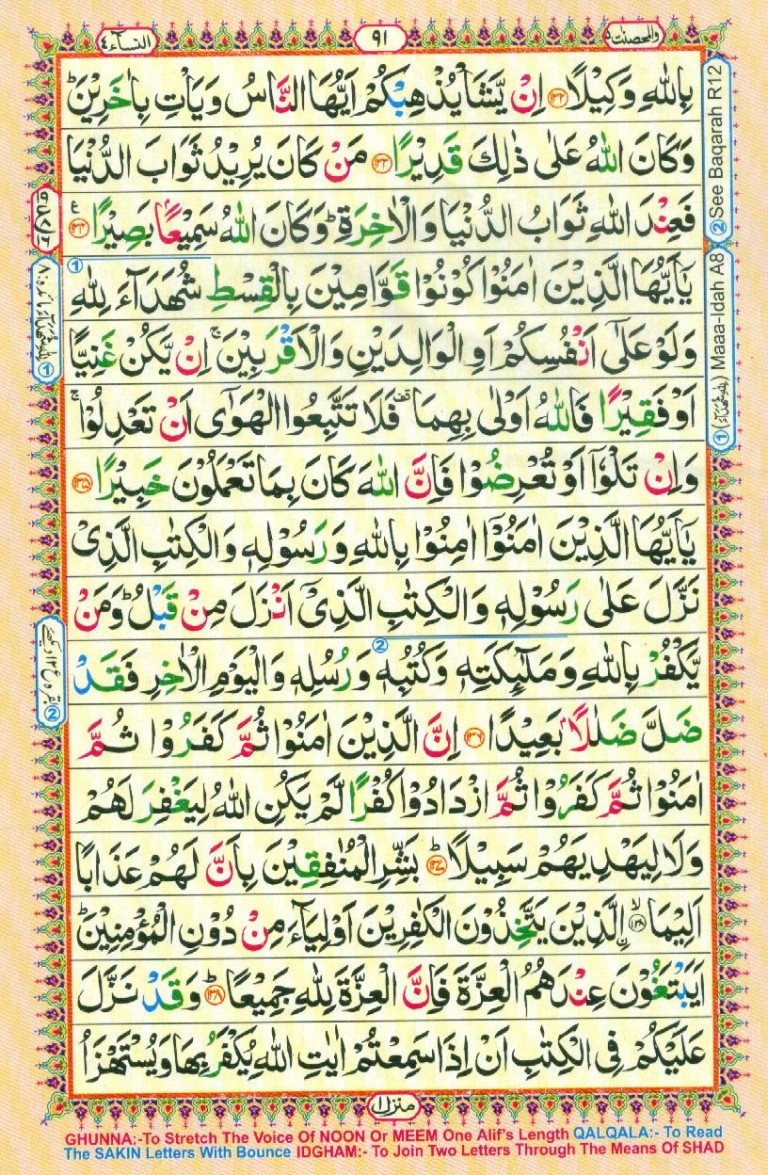 والمحصنت ٥
٩١
النسآء ٤
بِاللّٰهِ وَكِيْلًا ۝١٣٢ اِنْ يَّشَاْ يُذْهِبْكُمْ اَيُّهَا النَّاسُ وَيَاْتِ بِاٰخَرِيْنَ ؕ
وَكَانَ اللّٰهُ عَلٰى ذٰلِكَ قَدِيْرًا ۝١٣٣ مَنْ كَانَ يُرِيْدُ ثَوَابَ الدُّنْيَا
فَعِنْدَ اللّٰهِ ثَوَابُ الدُّنْيَا وَالْاٰخِرَةِ ؕ وَكَانَ اللّٰهُ سَمِيْعًۢا بَصِيْرًا ۝١٣٤
يٰۤاَيُّهَا الَّذِيْنَ اٰمَنُوْا كُوْنُوْا قَوّٰمِيْنَ بِالْقِسْطِ شُهَدَآءَ لِلّٰهِ
وَلَوْ عَلٰۤى اَنْفُسِكُمْ اَوِ الْوَالِدَيْنِ وَالْاَقْرَبِيْنَ ۚ اِنْ يَّكُنْ غَنِيًّا
اَوْ فَقِيْرًا فَاللّٰهُ اَوْلٰى بِهِمَا ۫ فَلَا تَتَّبِعُوا الْهَوٰۤى اَنْ تَعْدِلُوْا ۚ
وَاِنْ تَلْوٗۤا اَوْ تُعْرِضُوْا فَاِنَّ اللّٰهَ كَانَ بِمَا تَعْمَلُوْنَ خَبِيْرًا ۝١٣٥
يٰۤاَيُّهَا الَّذِيْنَ اٰمَنُوْۤا اٰمِنُوْا بِاللّٰهِ وَرَسُوْلِهٖ وَالْكِتٰبِ الَّذِيْ
نَزَّلَ عَلٰى رَسُوْلِهٖ وَالْكِتٰبِ الَّذِيْۤ اَنْزَلَ مِنْ قَبْلُ ؕ وَمَنْ
يَّكْفُرْ بِاللّٰهِ وَمَلٰٓئِكَتِهٖ وَكُتُبِهٖ وَرُسُلِهٖ وَالْيَوْمِ الْاٰخِرِ فَقَدْ
ضَلَّ ضَلٰلًۢا بَعِيْدًا ۝١٣٦ اِنَّ الَّذِيْنَ اٰمَنُوْا ثُمَّ كَفَرُوْا ثُمَّ
اٰمَنُوْا ثُمَّ كَفَرُوْا ثُمَّ ازْدَادُوْا كُفْرًا لَّمْ يَكُنِ اللّٰهُ لِيَغْفِرَ لَهُمْ
وَلَا لِيَهْدِيَهُمْ سَبِيْلًا ؕ۝١٣٧ بَشِّرِ الْمُنٰفِقِيْنَ بِاَنَّ لَهُمْ عَذَابًا
اَلِيْمَا ۙ۝١٣٨ ۨالَّذِيْنَ يَتَّخِذُوْنَ الْكٰفِرِيْنَ اَوْلِيَآءَ مِنْ دُوْنِ الْمُؤْمِنِيْنَ ؕ
اَيَبْتَغُوْنَ عِنْدَهُمُ الْعِزَّةَ فَاِنَّ الْعِزَّةَ لِلّٰهِ جَمِيْعًا ؕ۝١٣٩ وَقَدْ نَزَّلَ
عَلَيْكُمْ فِى الْكِتٰبِ اَنْ اِذَا سَمِعْتُمْ اٰيٰتِ اللّٰهِ يُكْفَرُ بِهَا وَيُسْتَهْزَاُ
② See Baqarah R12
① Maaa-Idah A8
منزل ١
GHUNNA:-To Stretch The Voice Of NOON Or MEEM One Alif's Length QALQALA:- To Read
The SAKIN Letters With Bounce IDGHAM:- To Join Two Letters Through The Means Of SHAD